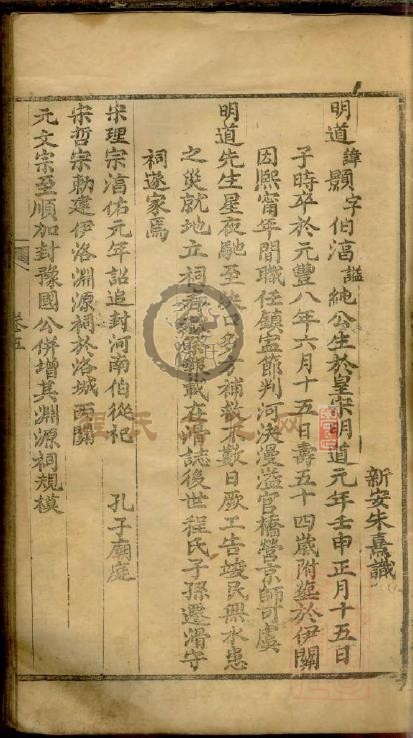 新安朱熹識
明道諱顥字伯淳謚純公生於皇宋明道元年壬申正月十五日
子時卒於元豐八年六月十五日壽五十四歲附塟於伊闕
因熙甯年間職任鎮寍節判河決漫溢官橋營京師可虞
明道先生星夜馳至決口多方補救不數日厥工告竣民無水患
之災就地立祠 載在滑誌後世程氏子孫遷滑守
祠遂家焉
宋理宗淳佑元年詔追封河南伯從祀 孔子廟庭
宋哲宗勅建伊洛淵源祠於洛城西關
元文宗至順加封豫國公併增其淵源祠規模
卷五